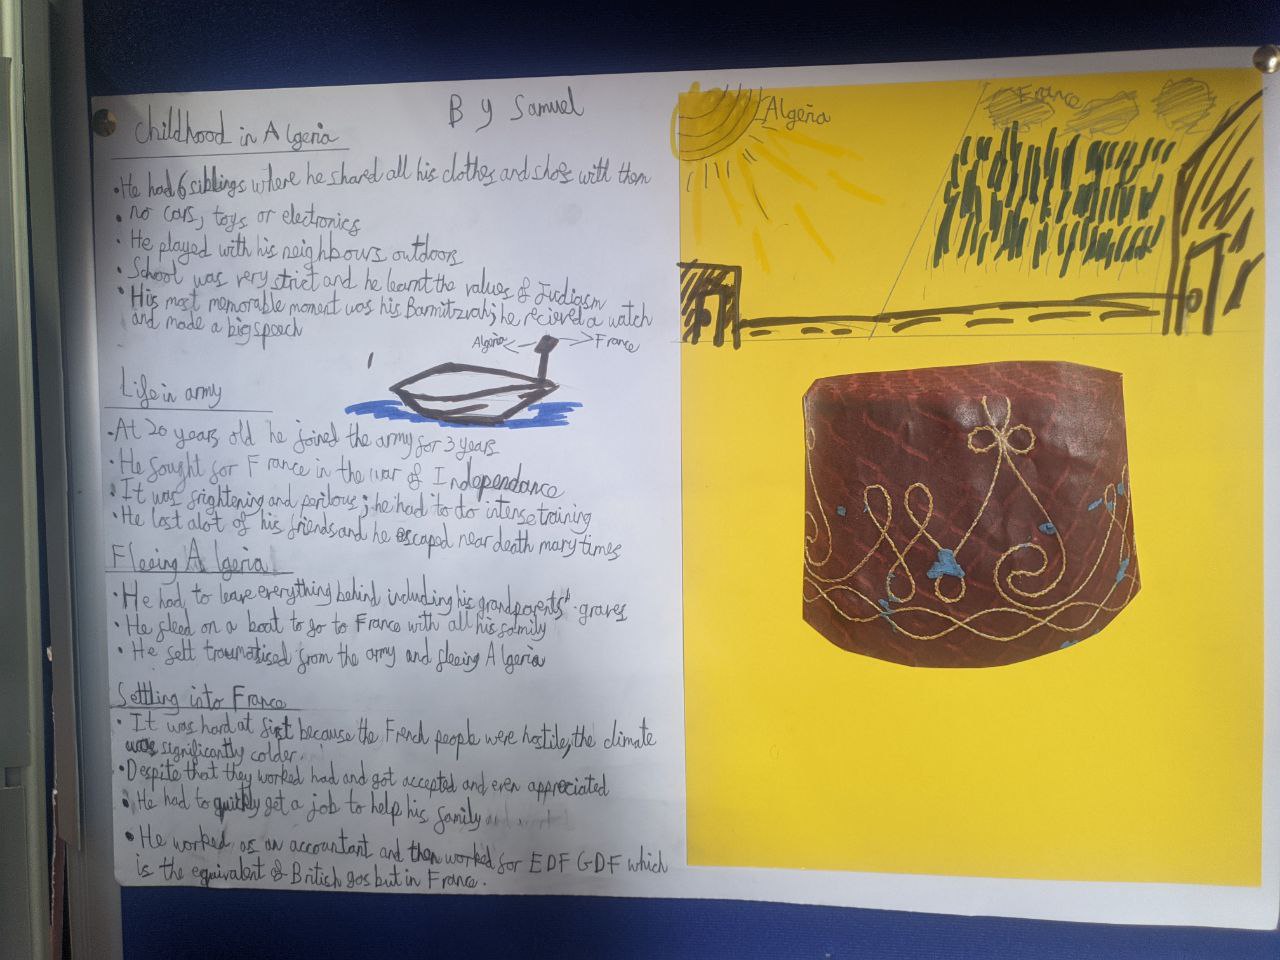 Childhood in Algeria
By Samuel
• He had 6 siblings where he shared all his clothes and shoes with them
• no cars, toys or electronics
• He played with his neighbours outdoors
• School was very strict and he learnt the values of Judiasm
• His most memorable moment was his Barmitzvah; he recieved a watch
and made a big speech
Algeria
France
Life in army
• At 20 years old he joined the army for 3 years
• He fought for France in the war of Independance
• It was frightening and perilous; he had to do intense training
• He lost alot of his friends and he escaped near death many times
Fleeing Algeria
• He had to leave everything behind including his grandparents' graves
• He fleed on a boat to go to France with all his family
• He felt traumatised from the army and fleeing Algeria
Settling into France
• It was hard at first because the French people were hostile, the climate
was significantly colder.
• Despite that they worked had and got accepted and even appreciated
• He had to quickly get a job to help his family
• He worked as an accountant and then worked for EDF GDF which
is the equivalent of British gas but in France.
Algeria
France